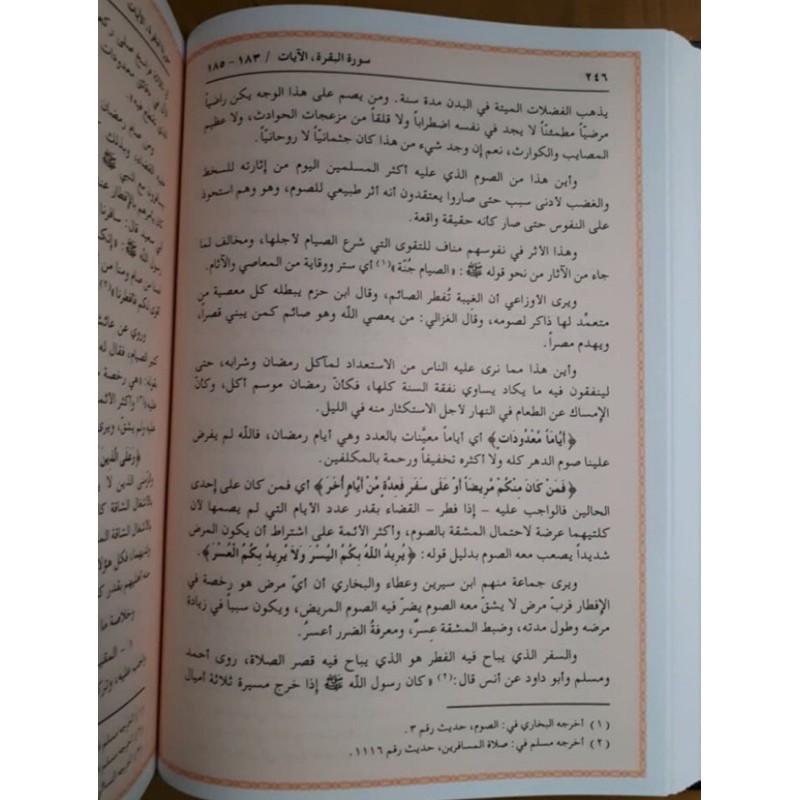 ٢٤٦
سورة البقرة، الآيات / ١٨٣ - ١٨٥
يذهب الفضلات الميتة في البدن مدة سنة. ومن يصم على هذا الوجه يكن راضياً
مرضيّاً مطمئناً لا يجد في نفسه اضطراباً ولا قلقاً من مزعجات الحوادث، ولا عظيم
المصايب والكوارث، نعم إن وجد شيء من هذا كان جثمانيّاً لا روحانيّاً.
وأين هذا من الصوم الذي عليه أكثر المسلمين اليوم من إثارته للسخط
والغضب لأدنى سبب حتى صاروا يعتقدون أنه أثر طبيعي للصوم، وهو وهم استحوذ
على النفوس حتى صار كأنه حقيقة واقعة.
وهذا الأثر في نفوسهم مناف للتقوى التي شرع الصيام لأجلها، ومخالف لما
جاء من الآثار من نحو قوله ﷺ: «الصيام جُنّة»(١) أي ستر ووقاية من المعاصي والآثام.
ويرى الأوزاعي أن الغيبة تُفطر الصائم، وقال ابن حزم يبطله كل معصية من
متعمِّد لها ذاكر لصومه، وقال الغزالي: من يعصي الله وهو صائم كمن يبني قصراً،
ويهدم مصراً.
وأين هذا مما نرى عليه الناس من الاستعداد لمآكل رمضان وشرابه، حتى
لينفقون فيه ما يكاد يساوي نفقة السنة كلها، فكأنّ رمضان موسم أكل، وكأنّ
الإمساك عن الطعام في النهار لأجل الاستكثار منه في الليل.
﴿أَيَّاماً مَّعْدُودَاتٍ﴾ أي أياماً معيَّنات بالعدد وهي أيام رمضان، فالله لم يفرض
علينا صوم الدهر كله ولا أكثره تخفيفاً ورحمة بالمكلفين.
﴿فَمَن كَانَ مِنكُم مَّرِيضاً أَوْ عَلَى سَفَرٍ فَعِدَّةٌ مِّنْ أَيَّامٍ أُخَرَ﴾ أي فمن كان على إحدى
الحالين فالواجب عليه - إذا فطر - القضاء بقدر عدد الأيام التي لم يصمها لأن
كلتيهما عرضة لاحتمال المشقة بالصوم، وأكثر الأئمة على اشتراط أن يكون المرض
شديداً يصعب معه الصوم بدليل قوله: ﴿يُرِيدُ اللَّهُ بِكُمُ الْيُسْرَ وَلاَ يُرِيدُ بِكُمُ الْعُسْرَ﴾.
ويرى جماعة منهم ابن سيرين وعطاء والبخاري أن أيّ مرض هو رخصة في
الإفطار فربّ مرض لا يشقّ معه الصوم يضرّ فيه الصوم المريض، ويكون سبباً في زيادة
مرضه وطول مدته، وضبط المشقة عِسرٌ، ومعرفةُ الضرر أعسرُ.
والسفر الذي يباح فيه الفطر هو الذي يباح فيه قصر الصلاة، روى أحمد
ومسلم وأبو داود عن أنس قال:(٢) «كان رسول الله ﷺ إذا خرج مسيرة ثلاثة أميال
(١) أخرجه البخاري في: الصوم، حديث رقم ٣.
(٢) أخرجه مسلم في: صلاة المسافرين، حديث رقم ١١١٦.